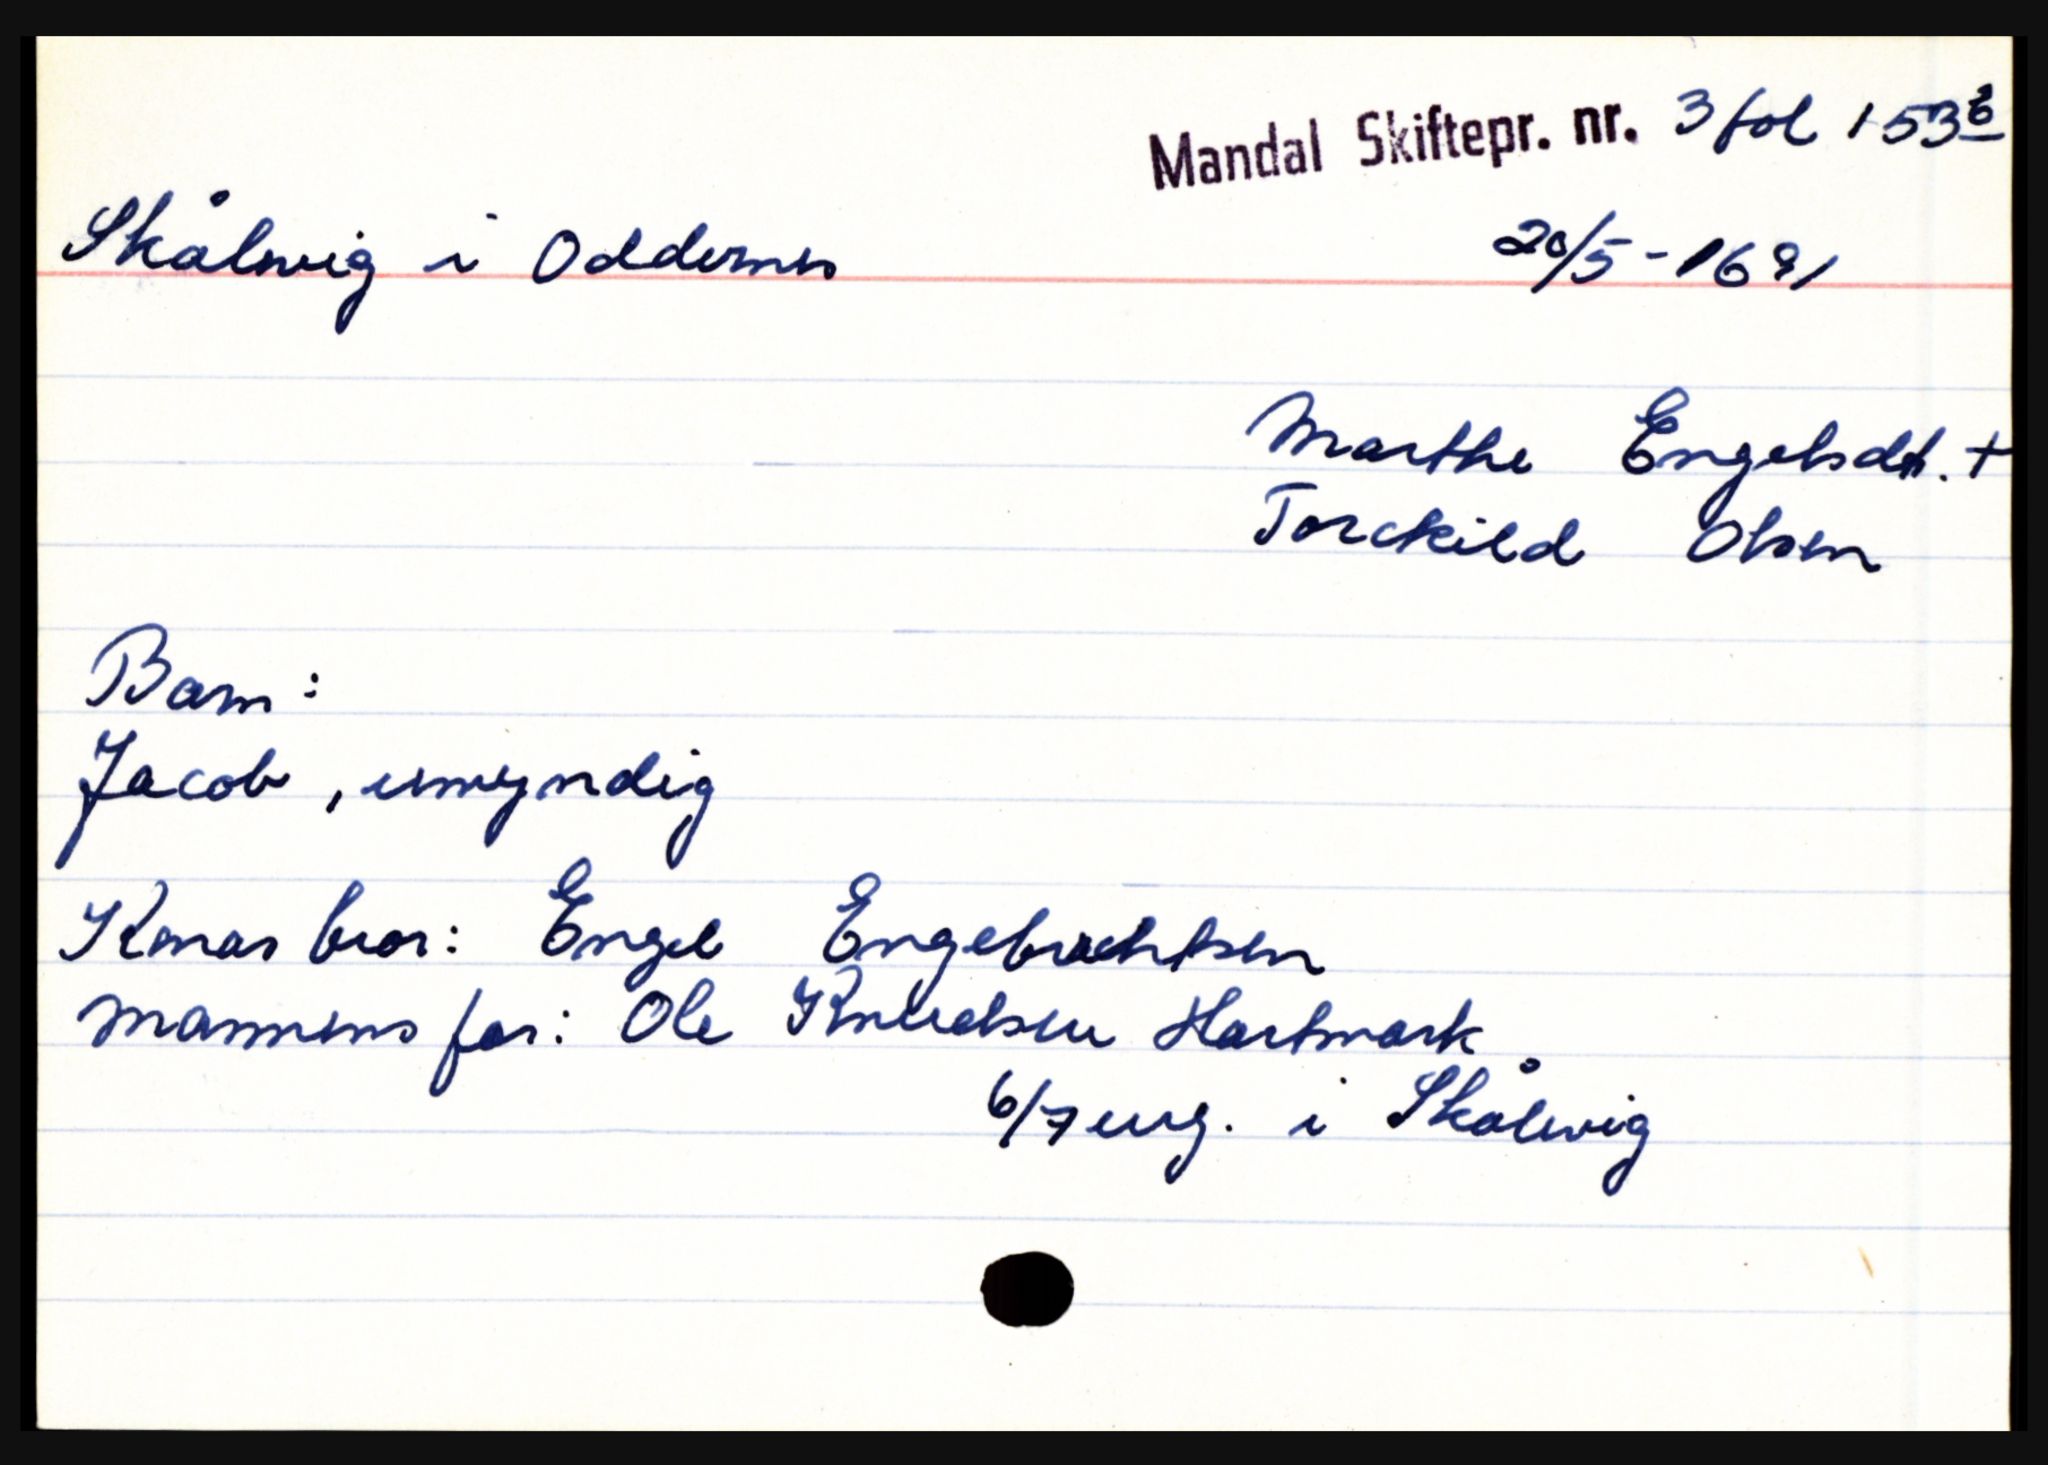 Mandal Skiftepr. nr. 3 fol 153 b
Skålevig i Oddernes
20/5 - 1691
Marthe Engelsdt. +
Torckild Olsen
Barn:
Jacob, umyndig
Konas bror: Engel Engebrechtsen
Mannens far: Ole Knudsen Hartmark
6/7 urg. i Skålevig